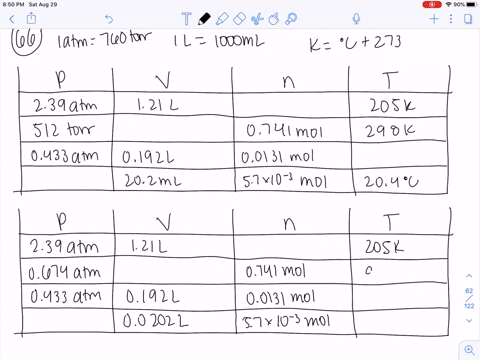 8:50 PM Sat Aug 29
90%
66 1atm = 760 torr 1 L = 1000mL K = °C + 273
P V n T
2.39 atm 1.21 L 205 K
512 torr 0.741 mol 298K
0.433 atm 0.192L 0.0131 mol
20.2 mL 5.7×10⁻³ mol 20.4°C
P V n T
2.39 atm 1.21 L 205K
0.674 atm 0.741 mol
0.433 atm 0.192L 0.0131 mol
0.0202L 5.7×10⁻³ mol
62
/
122